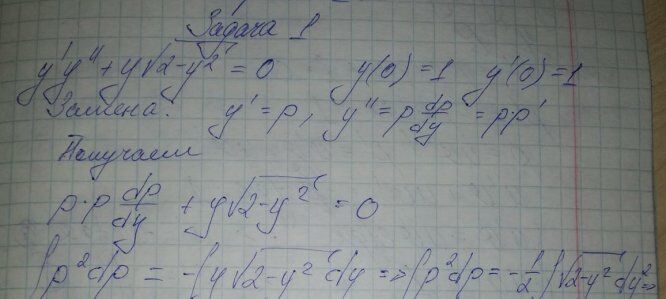 Задача 1
y'y'' + y√(2-y²) = 0 y(0) = 1 y'(0) = 1
Замена: y' = p, y'' = p dp/dy = pp'
Получаем
p·p dp/dy + y√(2-y²) = 0
∫p²dp = -∫y√(2-y²) dy => ∫p²dp = -1/2 ∫√(2-y²) dy² =>